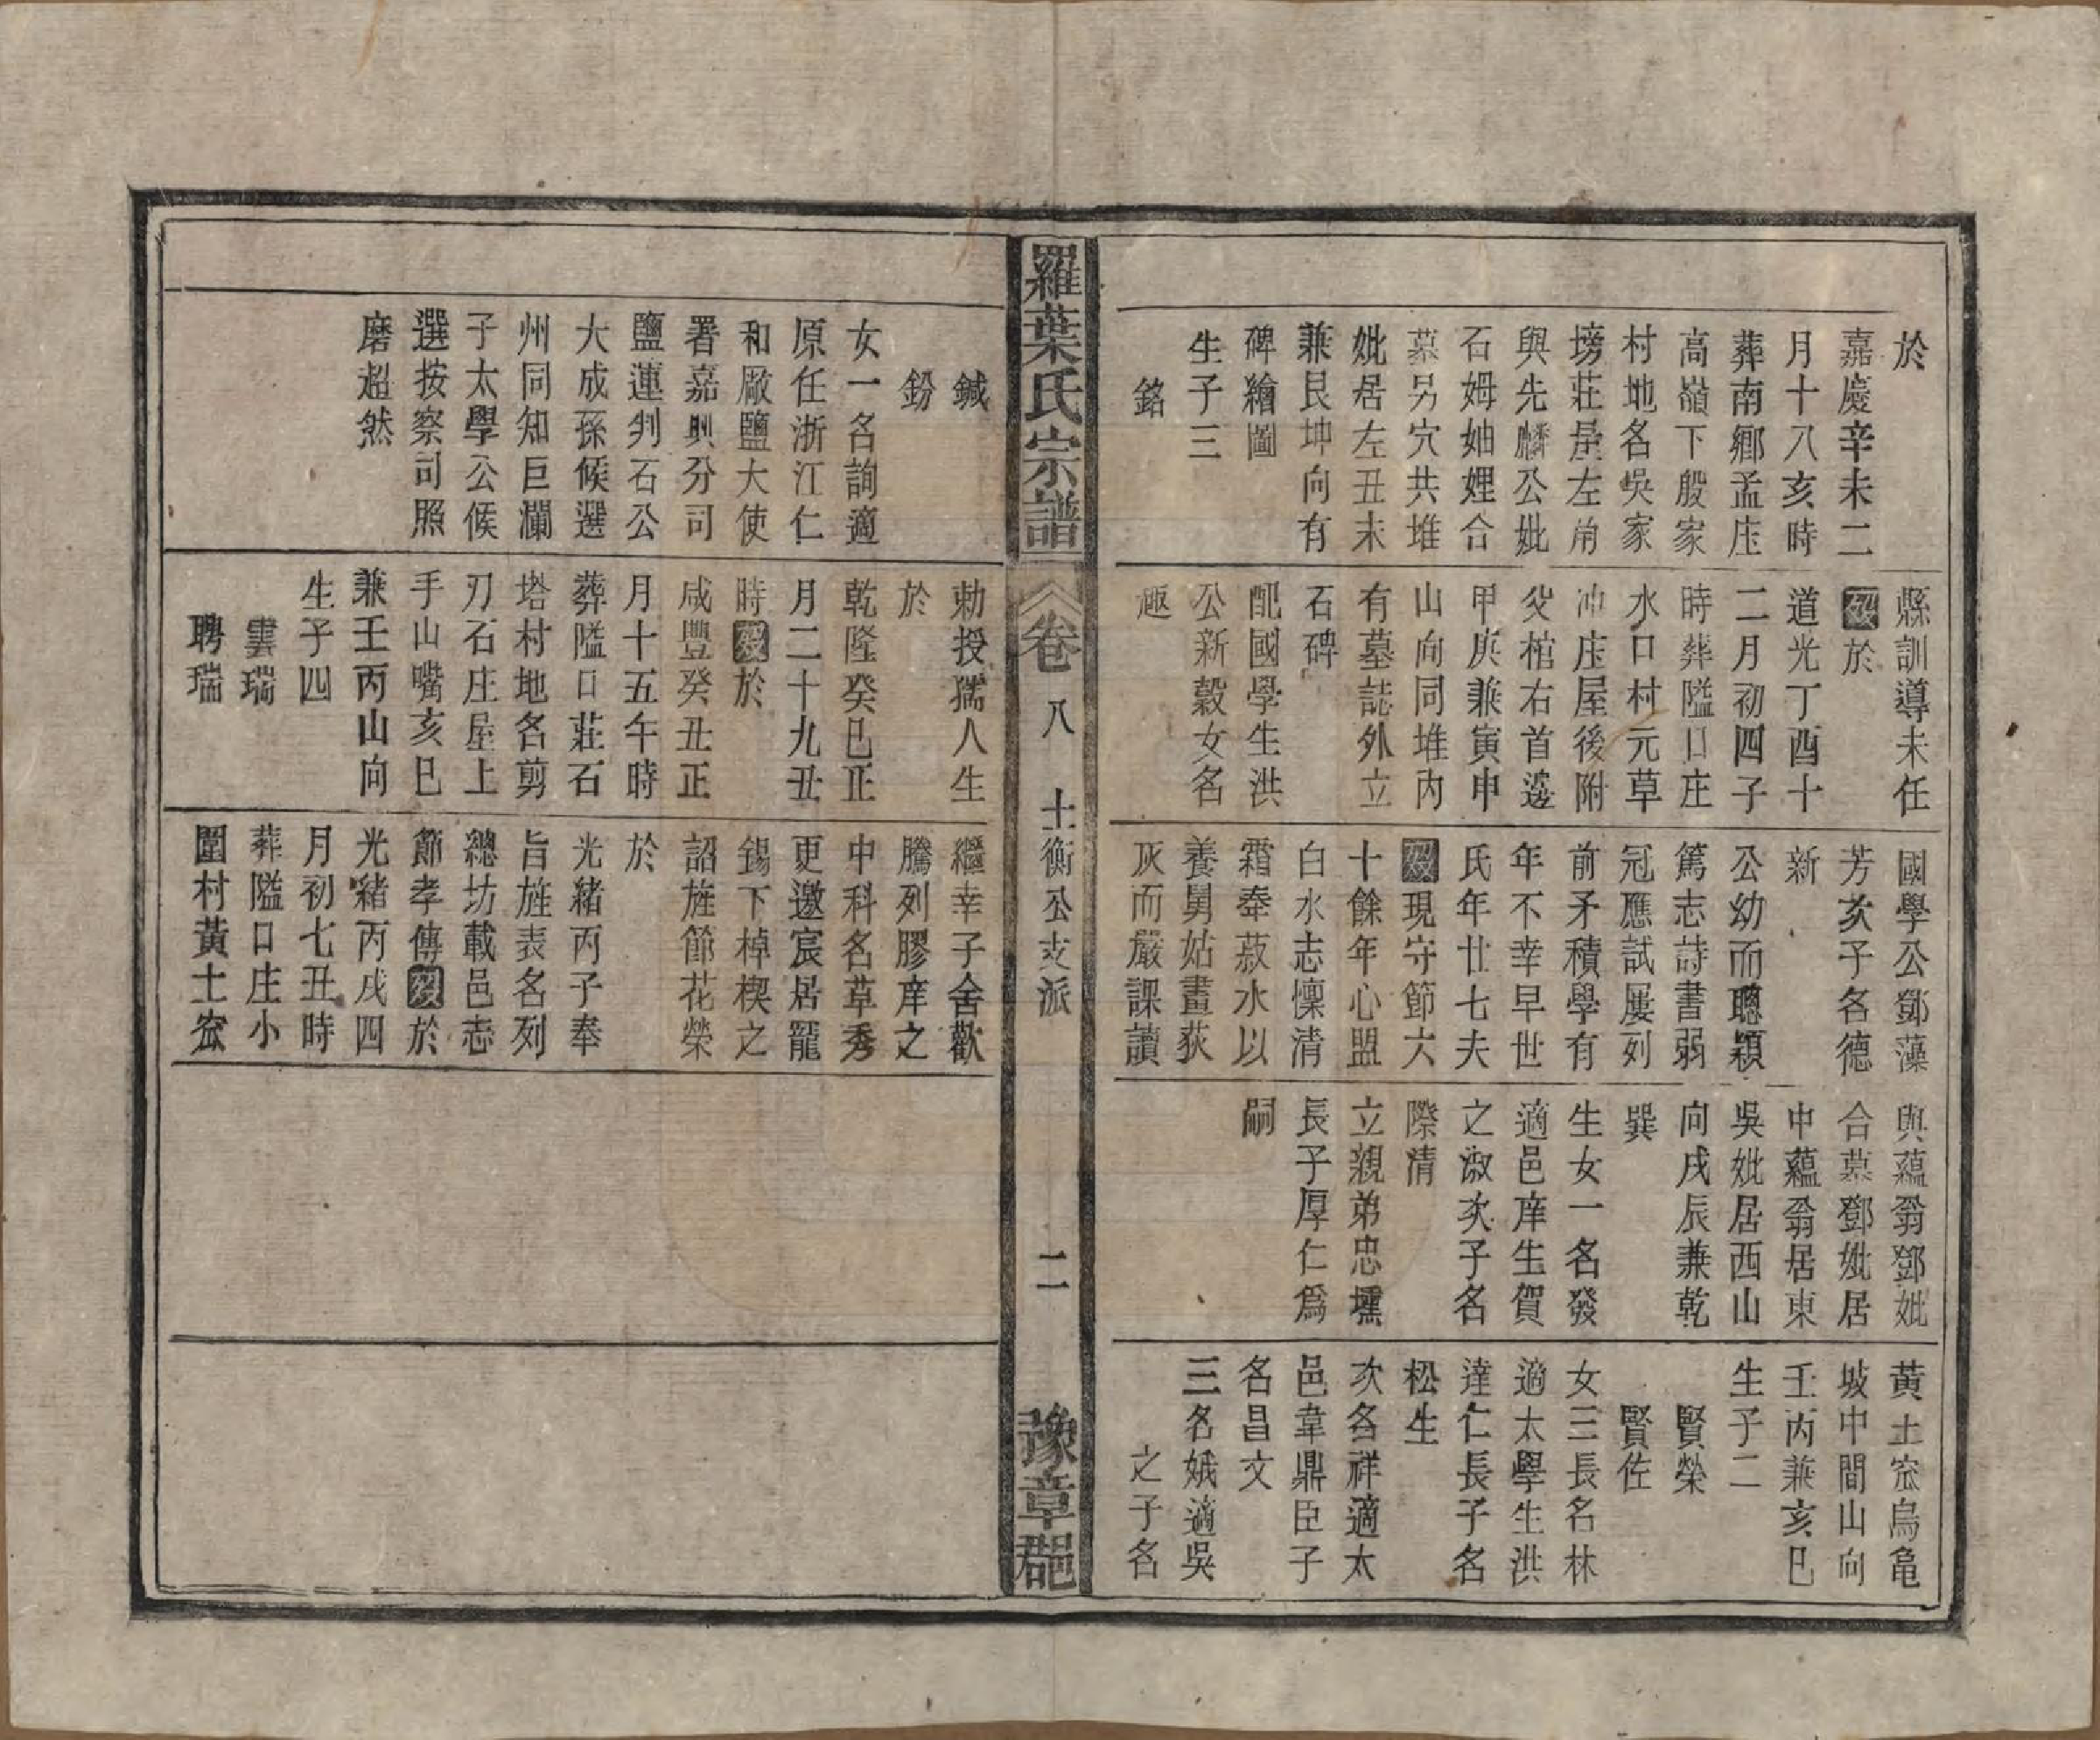 於
嘉慶辛未二
月十八亥時
葬南鄉孟庄
高嶺下殷家
村地名吳家
塝莊屋左角
與先麟公妣
石姆妯娌合
墓另穴共堆
妣居左丑未
兼艮坤向有
碑繪圖
生子三
銘
縣訓導未任
歿於
道光丁酉十
二月初四子
時葬隘口庄
水口村元草
沖庄屋後附
父棺右首邊
甲庚兼寅申
山向同堆內
有墓誌外立
石碑
配國學生洪
公新穀女名
趣
國學公鄧藻
芳次子名德
新
公幼而聰穎
篤志詩書弱
冠應試屢列
前矛積學有
年不幸早世
氏年廿七夫
歿現守節六
十餘年心盟
白水志懍清
霜奉菽水以
養舅姑畫荻
灰而嚴課讀
與蘊翁鄧妣
合墓鄧妣居
中蘊翁居東
吳妣居西山
向戌辰兼乾
巽
生女一名發
適邑庠生賀
之淑次子名
際清
立親弟忠壎
長子厚仁爲
嗣
黃土窊烏龜
坡中間山向
壬丙兼亥巳
生子二
賢榮
賢佐
女三長名林
適太學生洪
達仁長子名
松生
次名祥適太
邑韋鼎臣子
名昌文
三名娥適吳
之子名
羅葉氏宗譜
卷八
士衡公支派
二
豫章郡
鍼
鈖
女一名詢適
原任浙江仁
和廠鹽大使
署嘉興分司
鹽運判石公
大成孫候選
州同知巨瀾
子太學公候
選按察司照
磨超然
勅授孺人生
於
乾隆癸巳正
月二十九丑
時歿於
咸豐癸丑正
月十五午時
葬隘口莊石
塔村地名剪
刃石庄屋上
手山嘴亥巳
兼壬丙山向
生子四
雲瑞
聘瑞
繼幸子舍歡
騰列膠庠之
中科名草秀
更邀宸居寵
錫下棹楔之
詔旌節花榮
於
光緒丙子奉
旨旌表名列
總坊載邑志
節孝傳歿於
光緒丙戌四
月初七丑時
葬隘口庄小
圍村黃土窊